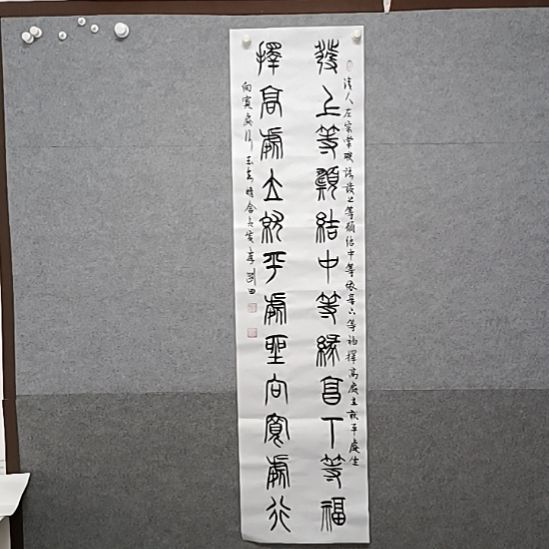 清人左宗棠聯語發上等願結中等緣享下等福擇高處立就平處坐
發上等願結中等緣享下等福
擇高處立就平處坐向寬處行
向寬處行